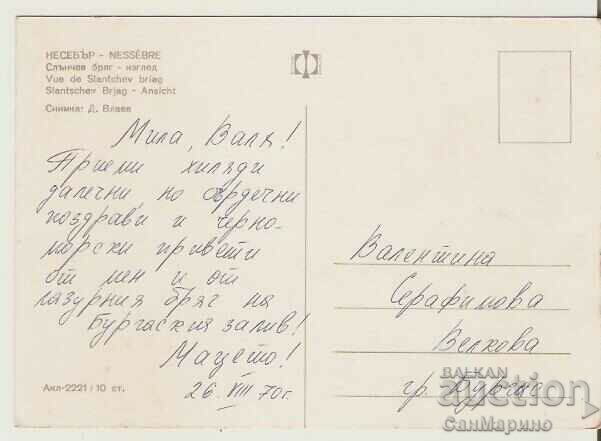 НЕСЕБЪР - NESSÈBRE
Слънчев бряг - изглед
Vue de Slantchev briag
Slantschev Brjag - Ansicht
Снимка: Д. Влаев
Мила, Валя!
Приеми хиляди
далечни но сърдечни
поздрави и черно-
морски привети
от мен и от
лазурния бряг на
Бургаския залив!
Мацето!
26. VIII 70г.
Акл-2221 / 10 ст.
Валентина
Серафимова
Велкова
гр.
BALKAN
auction
СанМарино